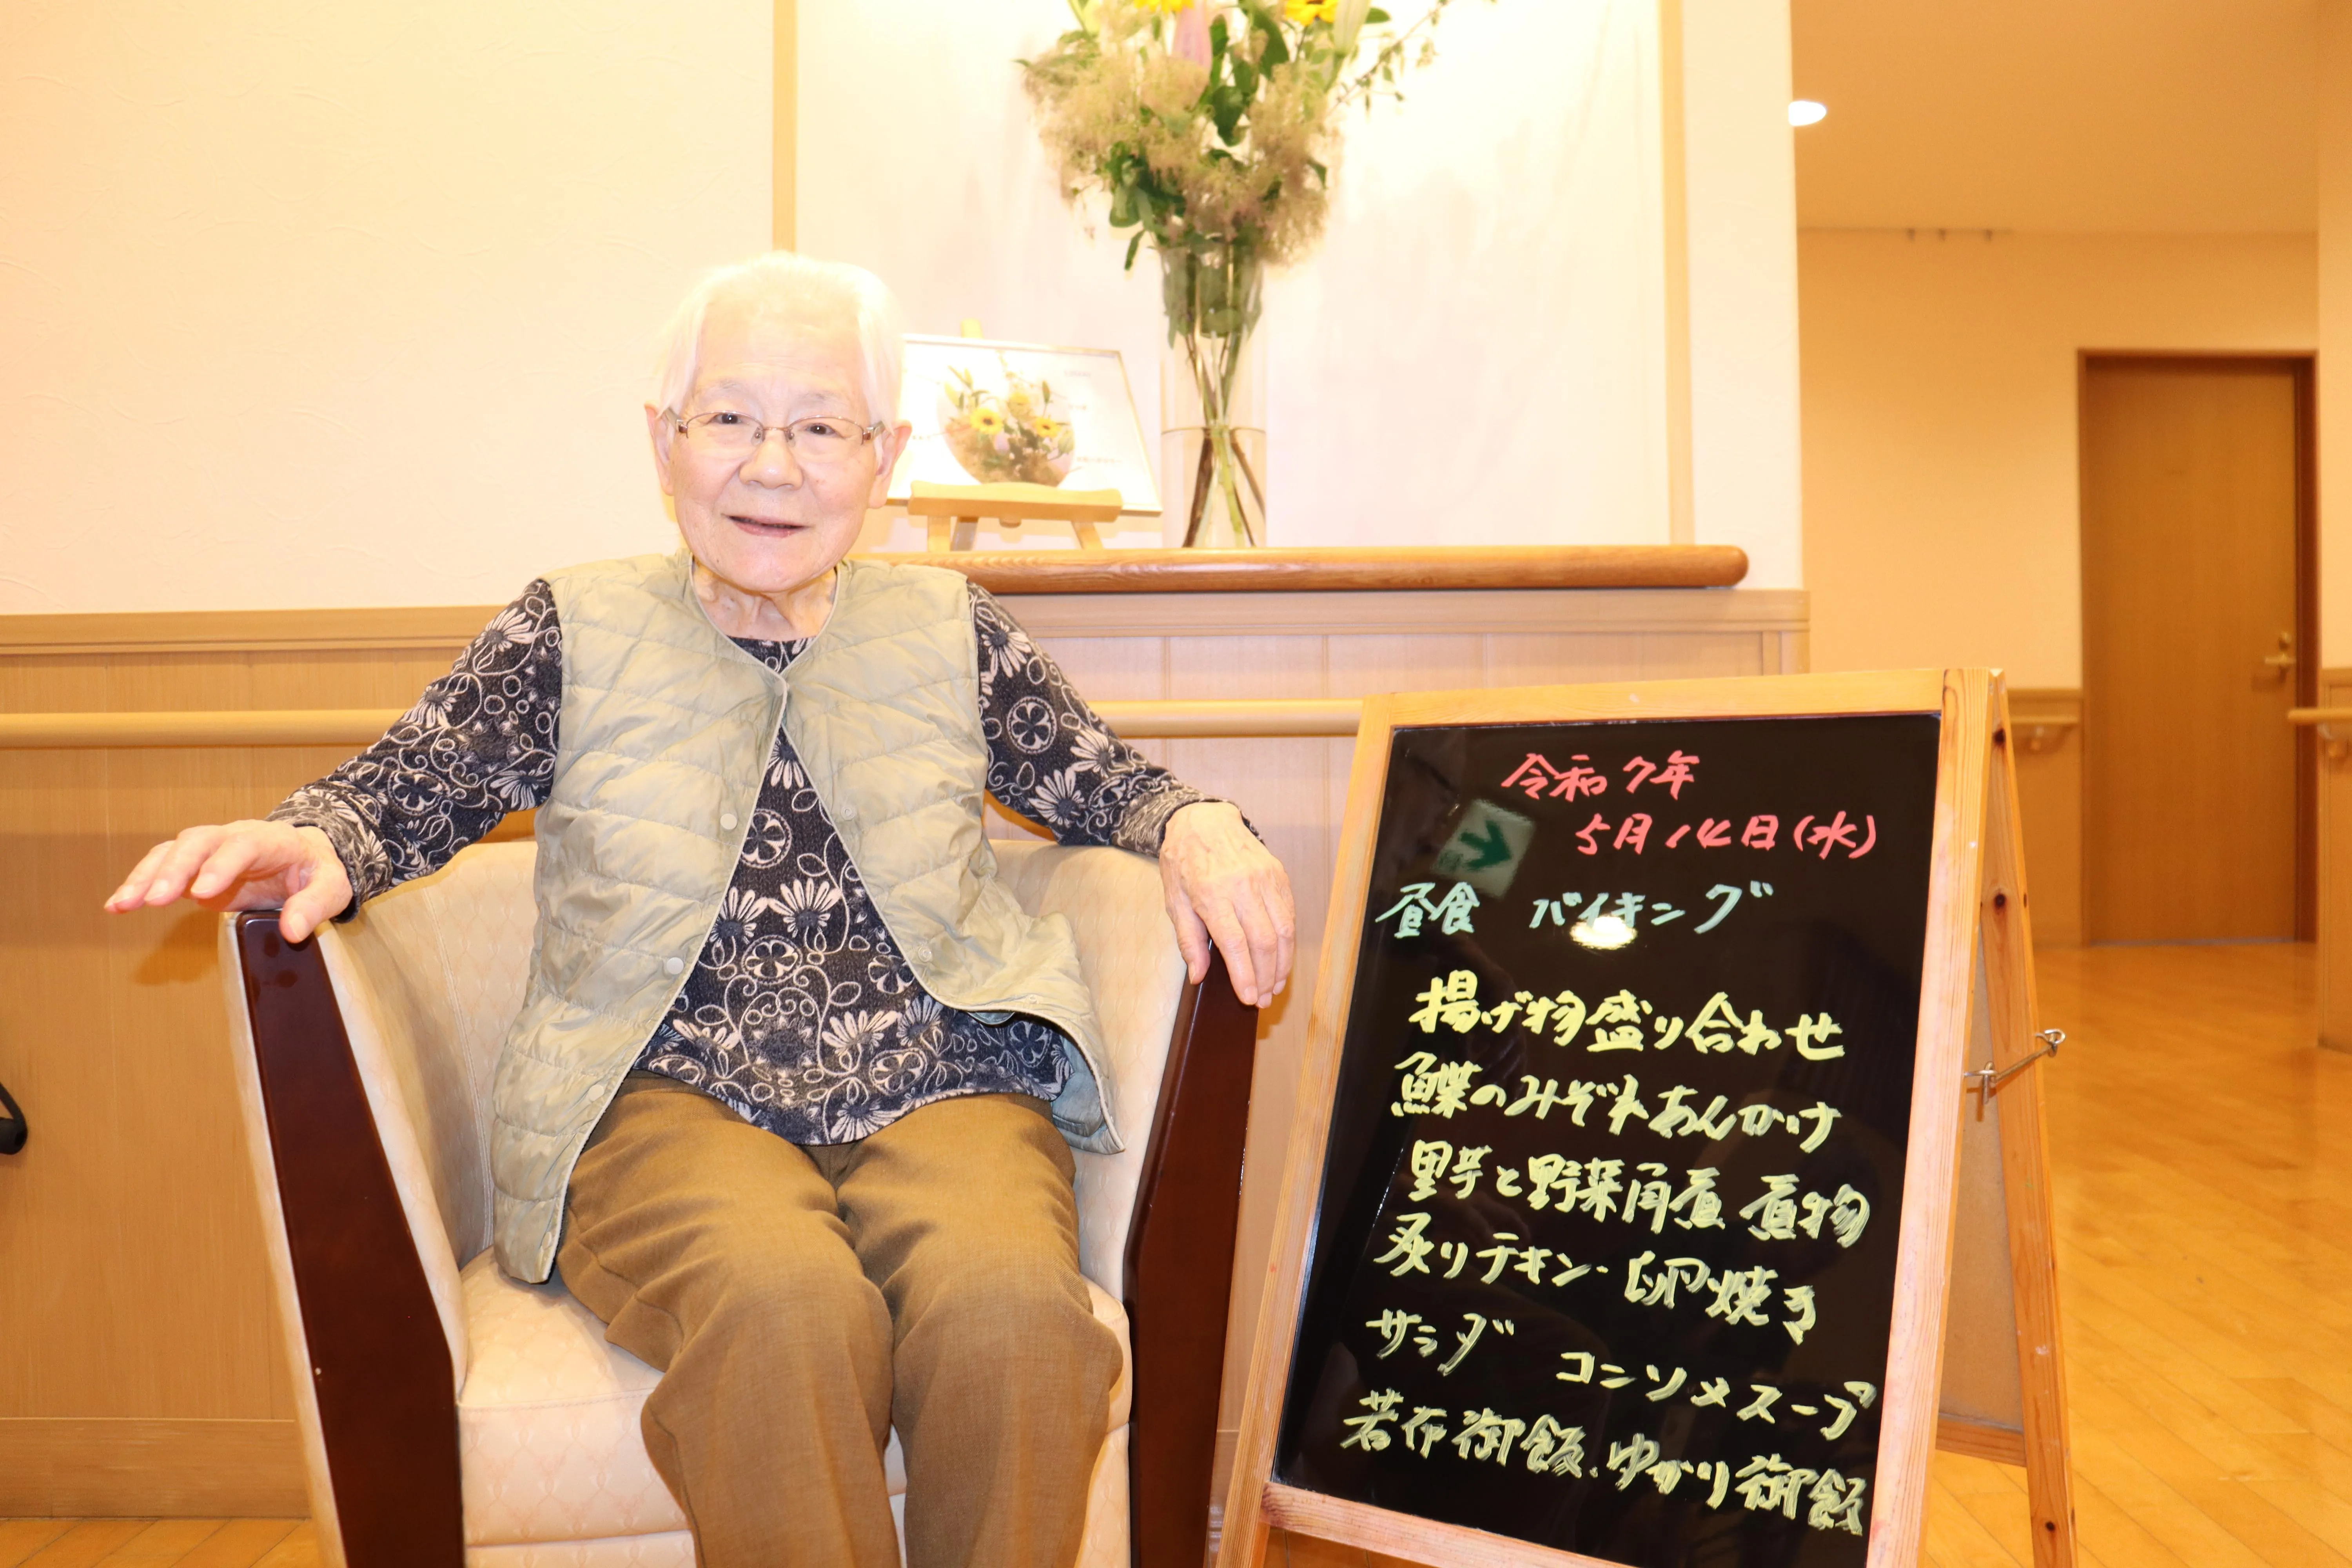 令和7年
5月14日(水)
昼食 バイキング
揚げ物盛り合わせ
鰈のみぞれあんかけ
里芋と野菜角煮 煮物
炙りチキン・卵焼き
サラダ コンソメスープ
若布御飯、ゆかり御飯